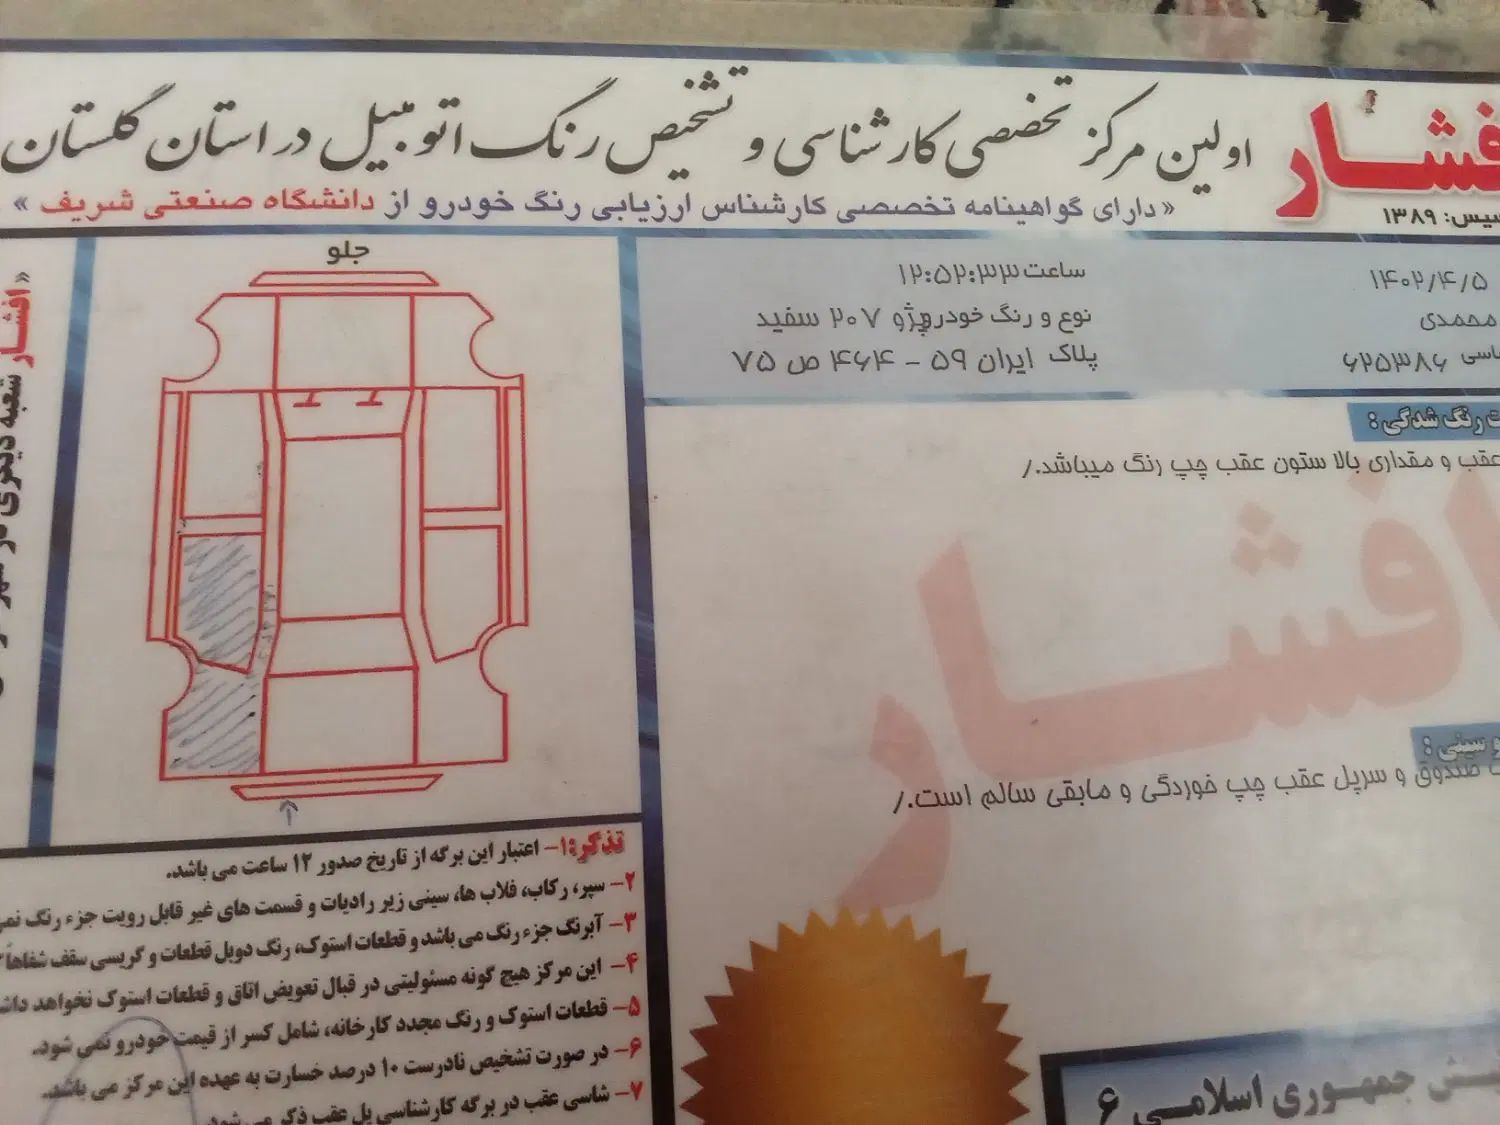 افشار
اولین مرکز تخصصی کارشناسی و تشخیص رنگ اتومبیل در استان گلستان
« دارای گواهینامه تخصصی کارشناس ارزیابی رنگ خودرو از دانشگاه صنعتی شریف »
۱۳۸۹
۱۴۰۲/۴/۵
ساعت ۱۲:۵۲:۳۳
محمدی
نوع و رنگ خودرو پژو ۲۰۷ سفید
۶۲۵۳۸۶
پلاک ایران ۵۹ - ۴۶۴ ص ۷۵
رنگ شدگی :
عقب و مقداری بالا ستون عقب چپ رنگ میباشد./
و سینی :
صندوق و سرپل عقب چپ خوردگی و مابقی سالم است./
افشار
جلو
« افشار شعبه دیگری
تذکر: ۱- اعتبار این برگه از تاریخ صدور ۱۲ ساعت می باشد.
۲- سپر، رکاب، فلاب ها، سینی زیر رادیات و قسمت های غیر قابل رویت جزء رنگ
۳- آبرنگ جزء رنگ می باشد و قطعات استوک، رنگ دوبل قطعات و گریسی سقف شفاهاً
۴- این مرکز هیچ گونه مسئولیتی در قبال تعویض اتاق و قطعات استوک نخواهد
۵- قطعات استوک و رنگ مجدد کارخانه، شامل کسر از قیمت خودرو نمی شود.
۶- در صورت تشخیص نادرست ۱۰ درصد خسارت به عهده این مرکز می باشد.
۷- شاسی عقب در برگه کارشناسی پل عقب ذکر می شود.
جمهوری اسلامی ۶